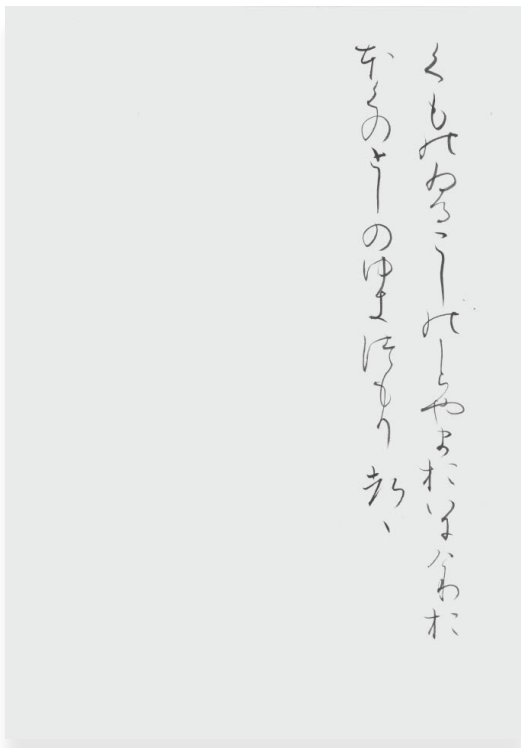 くものゐるこしのしらやまおいにけりお
ほくのとしのゆきつもりつゝ